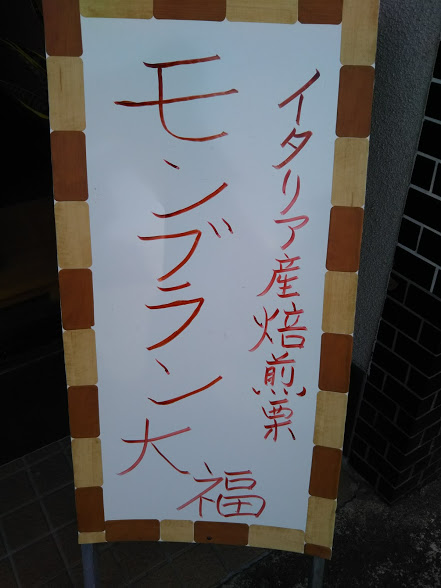 イタリア産焙煎栗
モンブラン大福